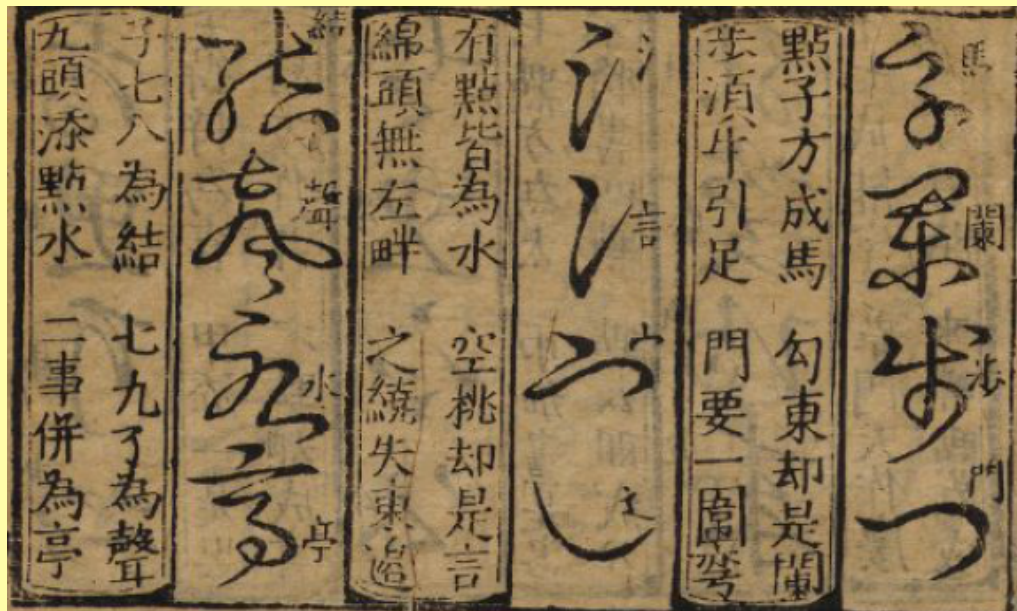 馬 闌 歩 門
點子方成馬 勾東却是闌
歩湏牛引足 門要一
氵 言 宀 辶
有點皆為水 空桃却是言
綿頭無左畔 之繞失東邉
結 聲 水 亭
子七八為結 七九了為聲
九頭添點水 二事併為亭